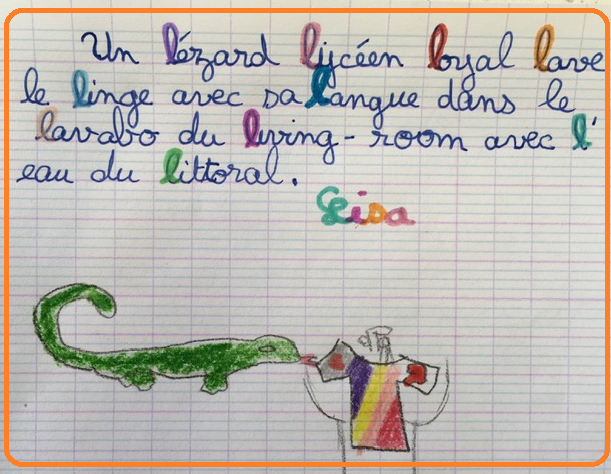 Un lézard lycéen loyal lave
le linge avec sa langue dans le
lavabo du living-room avec l'
eau du littoral.
Leisa